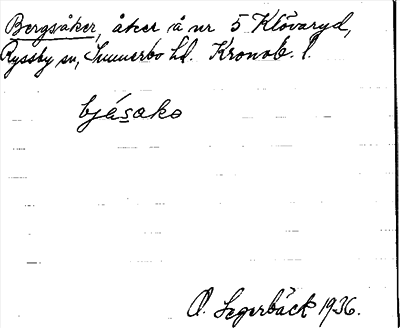 Bergsåker, åker å nr 5 Klövaryd,
Ryssby sn, Sunnerbo hd. Kronob. l.
bjásakə
O. Segerbäck 1936.